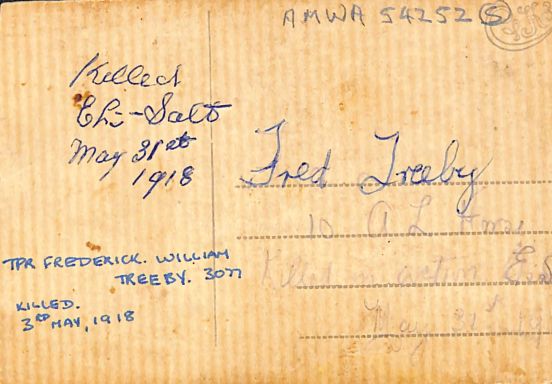 AMWA 54252 S
Killed
Es-Salt
May 31st
1918
Fred Treeby
10 A L Horse
Killed in action Es
May 31st
TPR FREDERICK. WILLIAM
TREEBY. 3077
KILLED.
3RD MAY, 1918